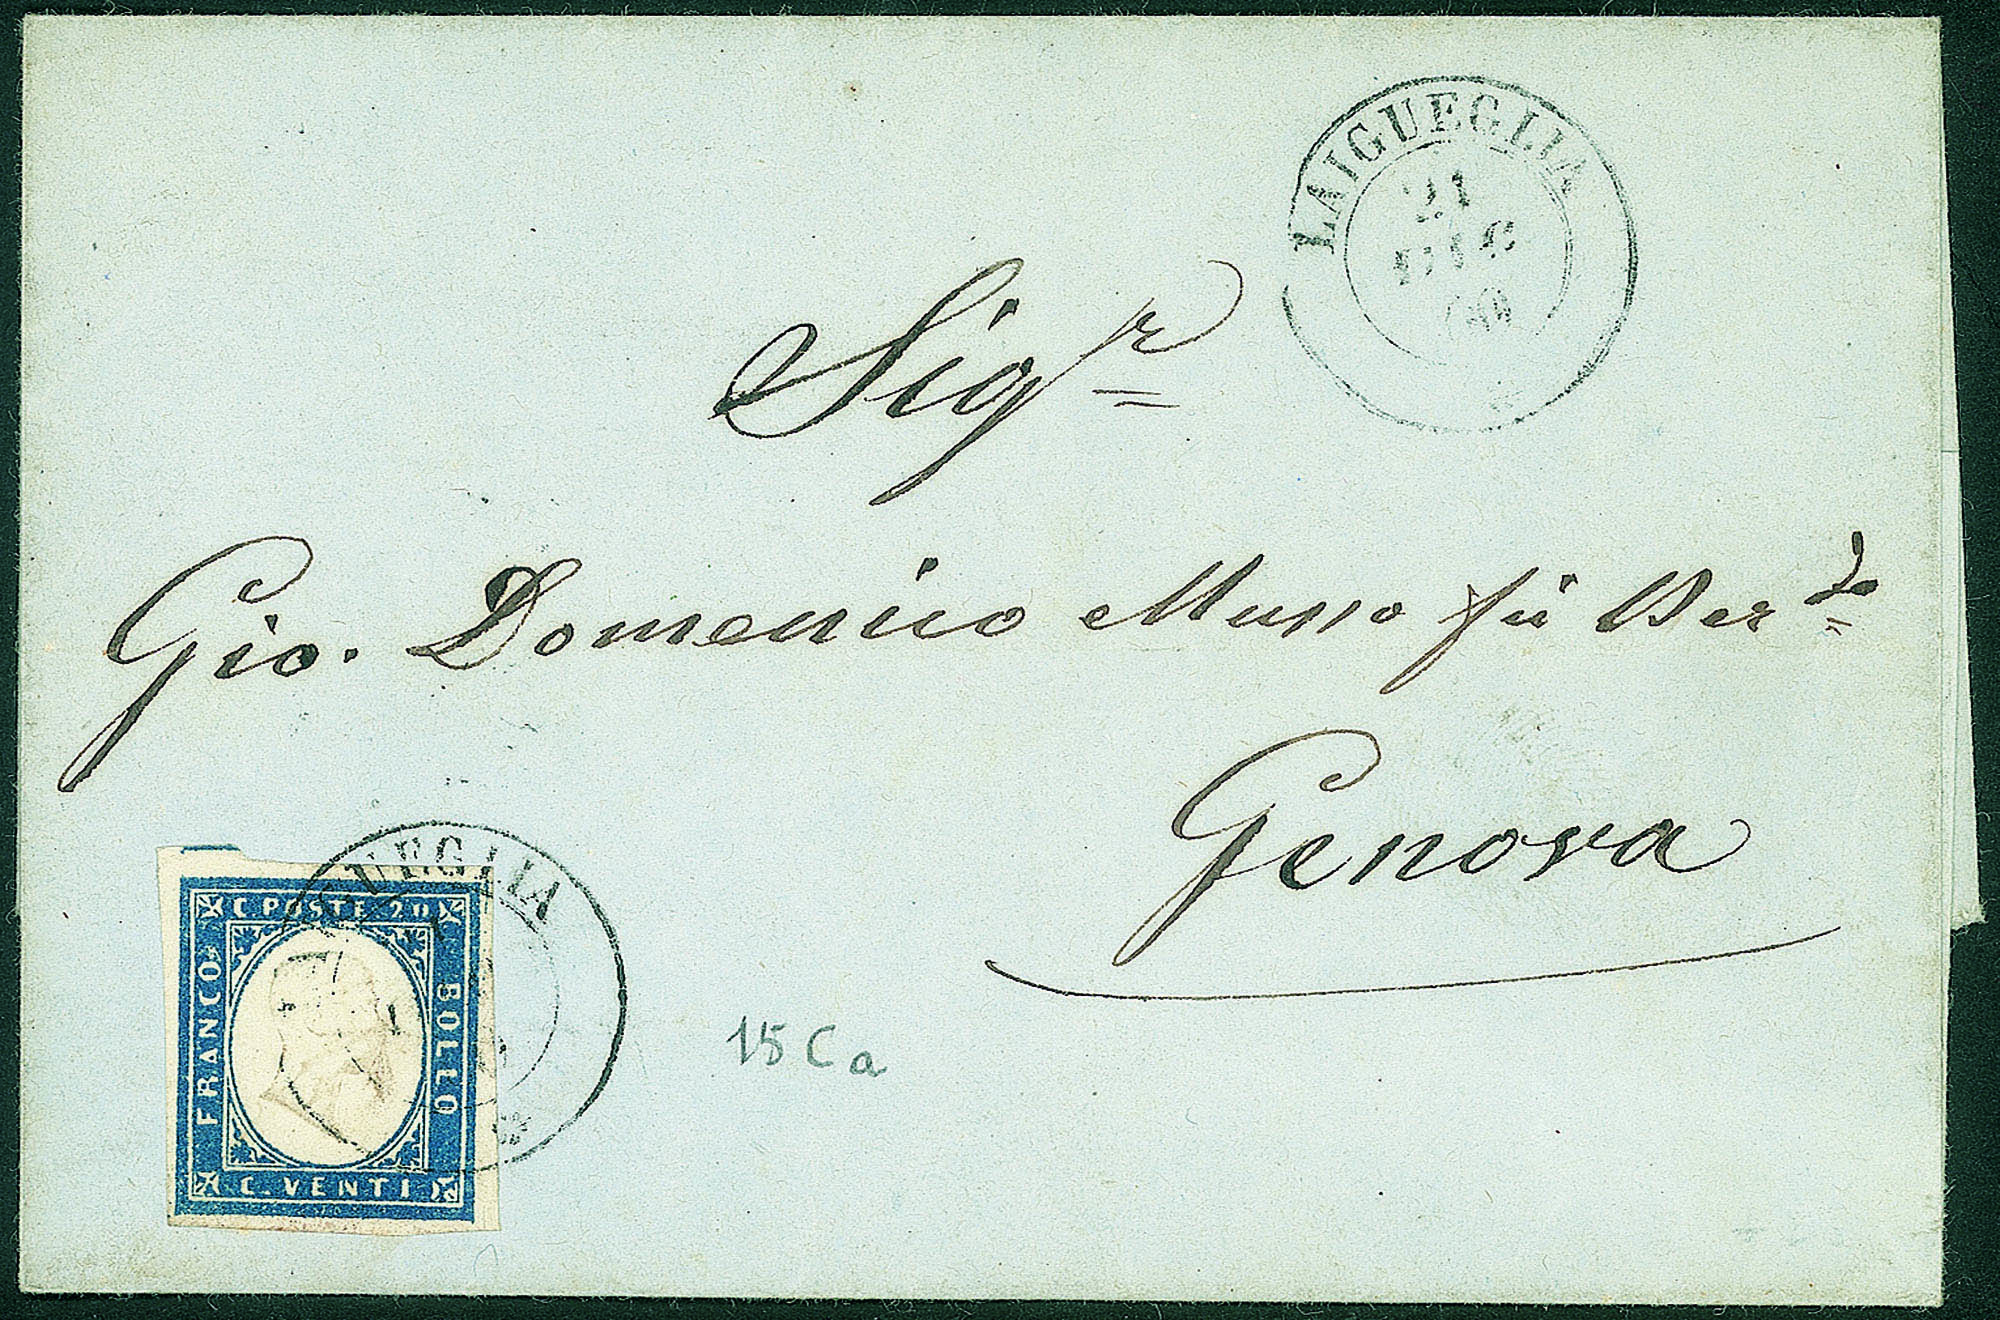 LAIGUEGLIA
21
DIC
60
Sigr
Gio. Domenico Musso fù Berdo
Genova
GUEGLIA
C. POSTE 20
FRANCO
BOLLO
C. VENTI
15 C a